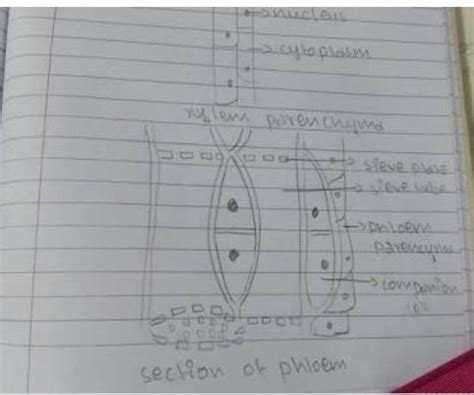 nucleus
cytoplasm
xylem parenchyma
sieve plate
sieve tube
phloem
parencyma
companion
cell
section of phloem